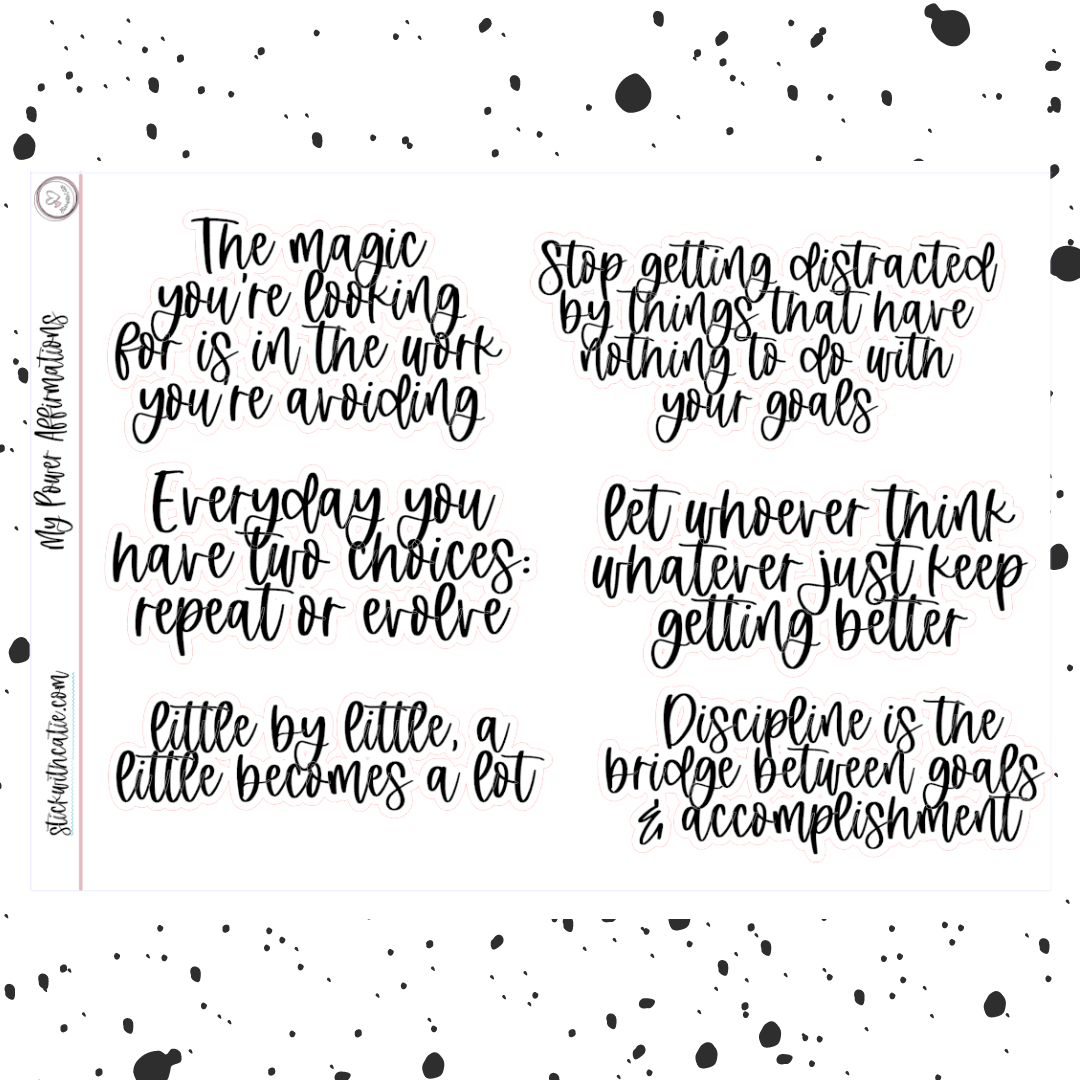 My Power Affirmations
stickwithcatie.com
The magic
you're looking
for is in the work
you're avoiding
Stop getting distracted
by things that have
nothing to do with
your goals
Everyday you
have two choices:
repeat or evolve
let whoever think
whatever just keep
getting better
little by little, a
little becomes a lot
Discipline is the
bridge between goals
& accomplishment